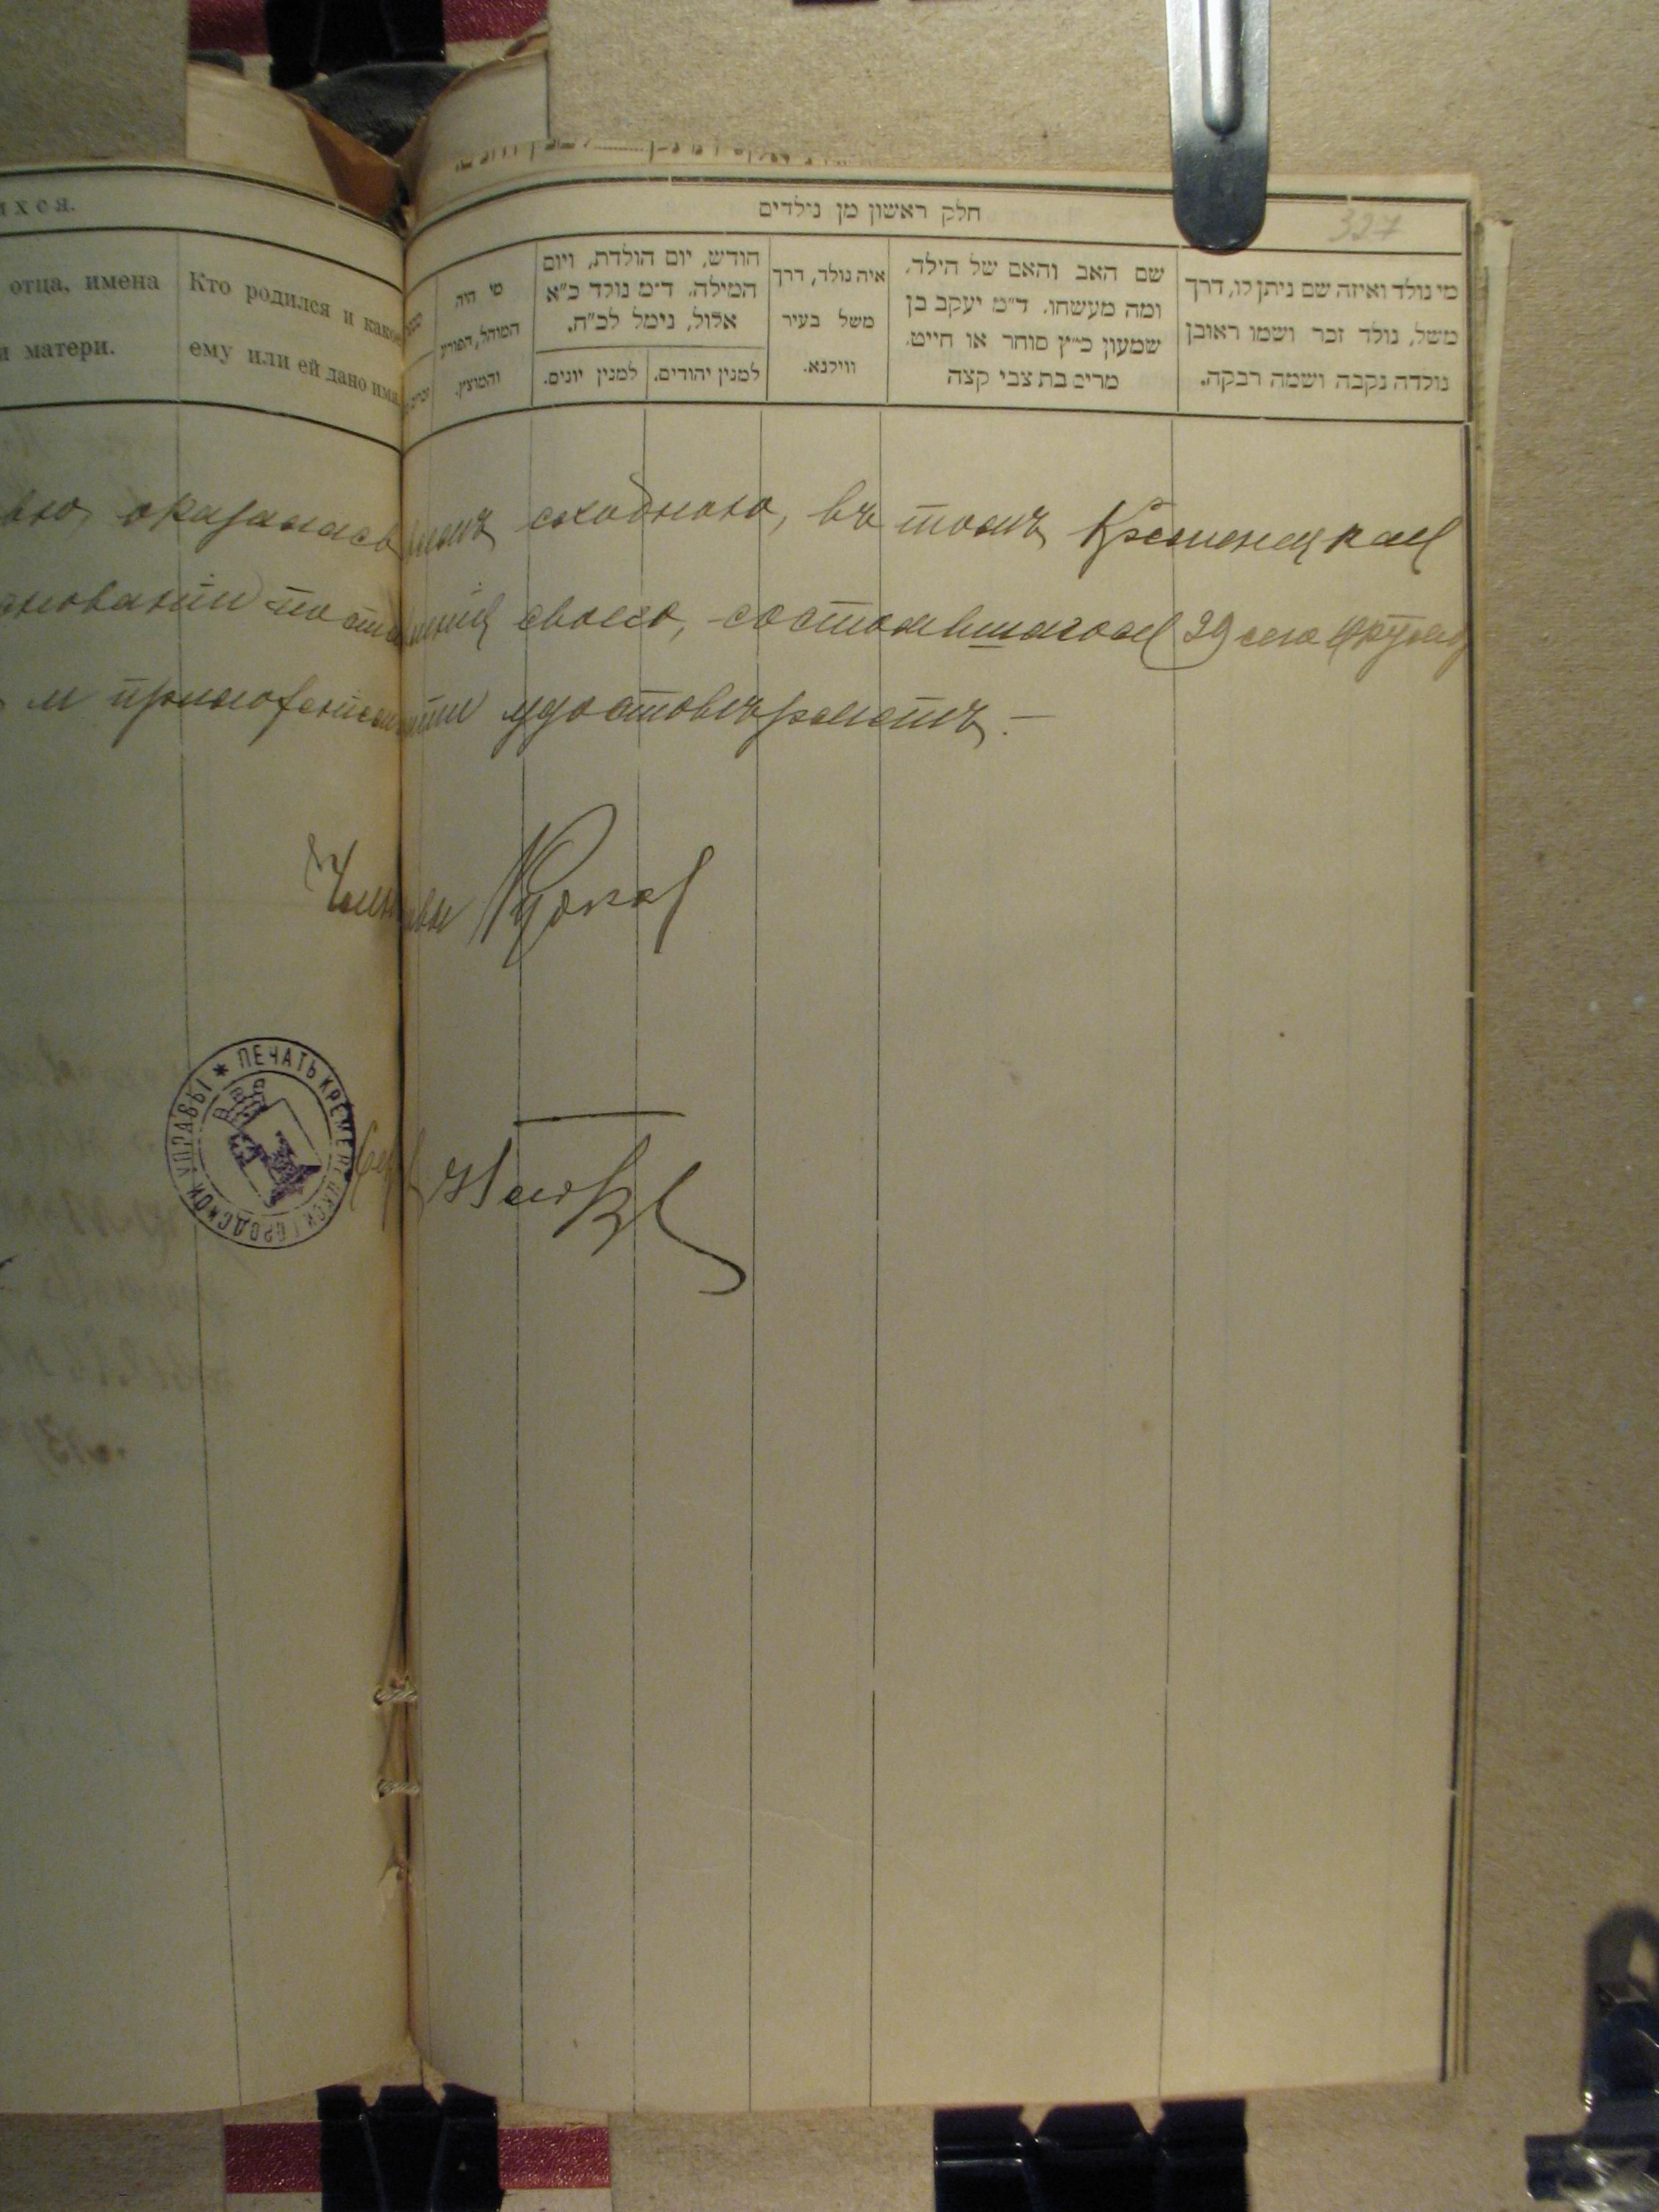 ихся.
отца, имена
и матери.
Кто родился и какое
ему или ей дано имя.
חלק ראשון מן נילדים
327
מי נולד ואיזה שם ניתן לו, דרך
משל, נולד זכר ושמו ראובן
נולדה נקבה ושמה רבקה.
שם האב והאם של הילד,
ומה מעשהו. ד״מ יעקב בן
שמעון כ״ץ סוחר או חייט.
מרים בת צבי קצה
איה נולד, דרך
משל בעיר
ווילנא.
חודש, יום הולדת, ויום
המילה. ד״מ נולד כ״א
אלול, נימל לכ״ח.
למנין יהודים.
למנין יונים.
מי היה
המוהל, הפורע
והמוצץ.
вю, оказалась сходною, въ томъ Кременецкая
своего, состоявшагося 29 сего
и приложениемъ удостовѣряетъ. —
ПЕЧАТЬ КРЕМЕНЕЦКОЙ ГОРОДСКОЙ УПРАВЫ